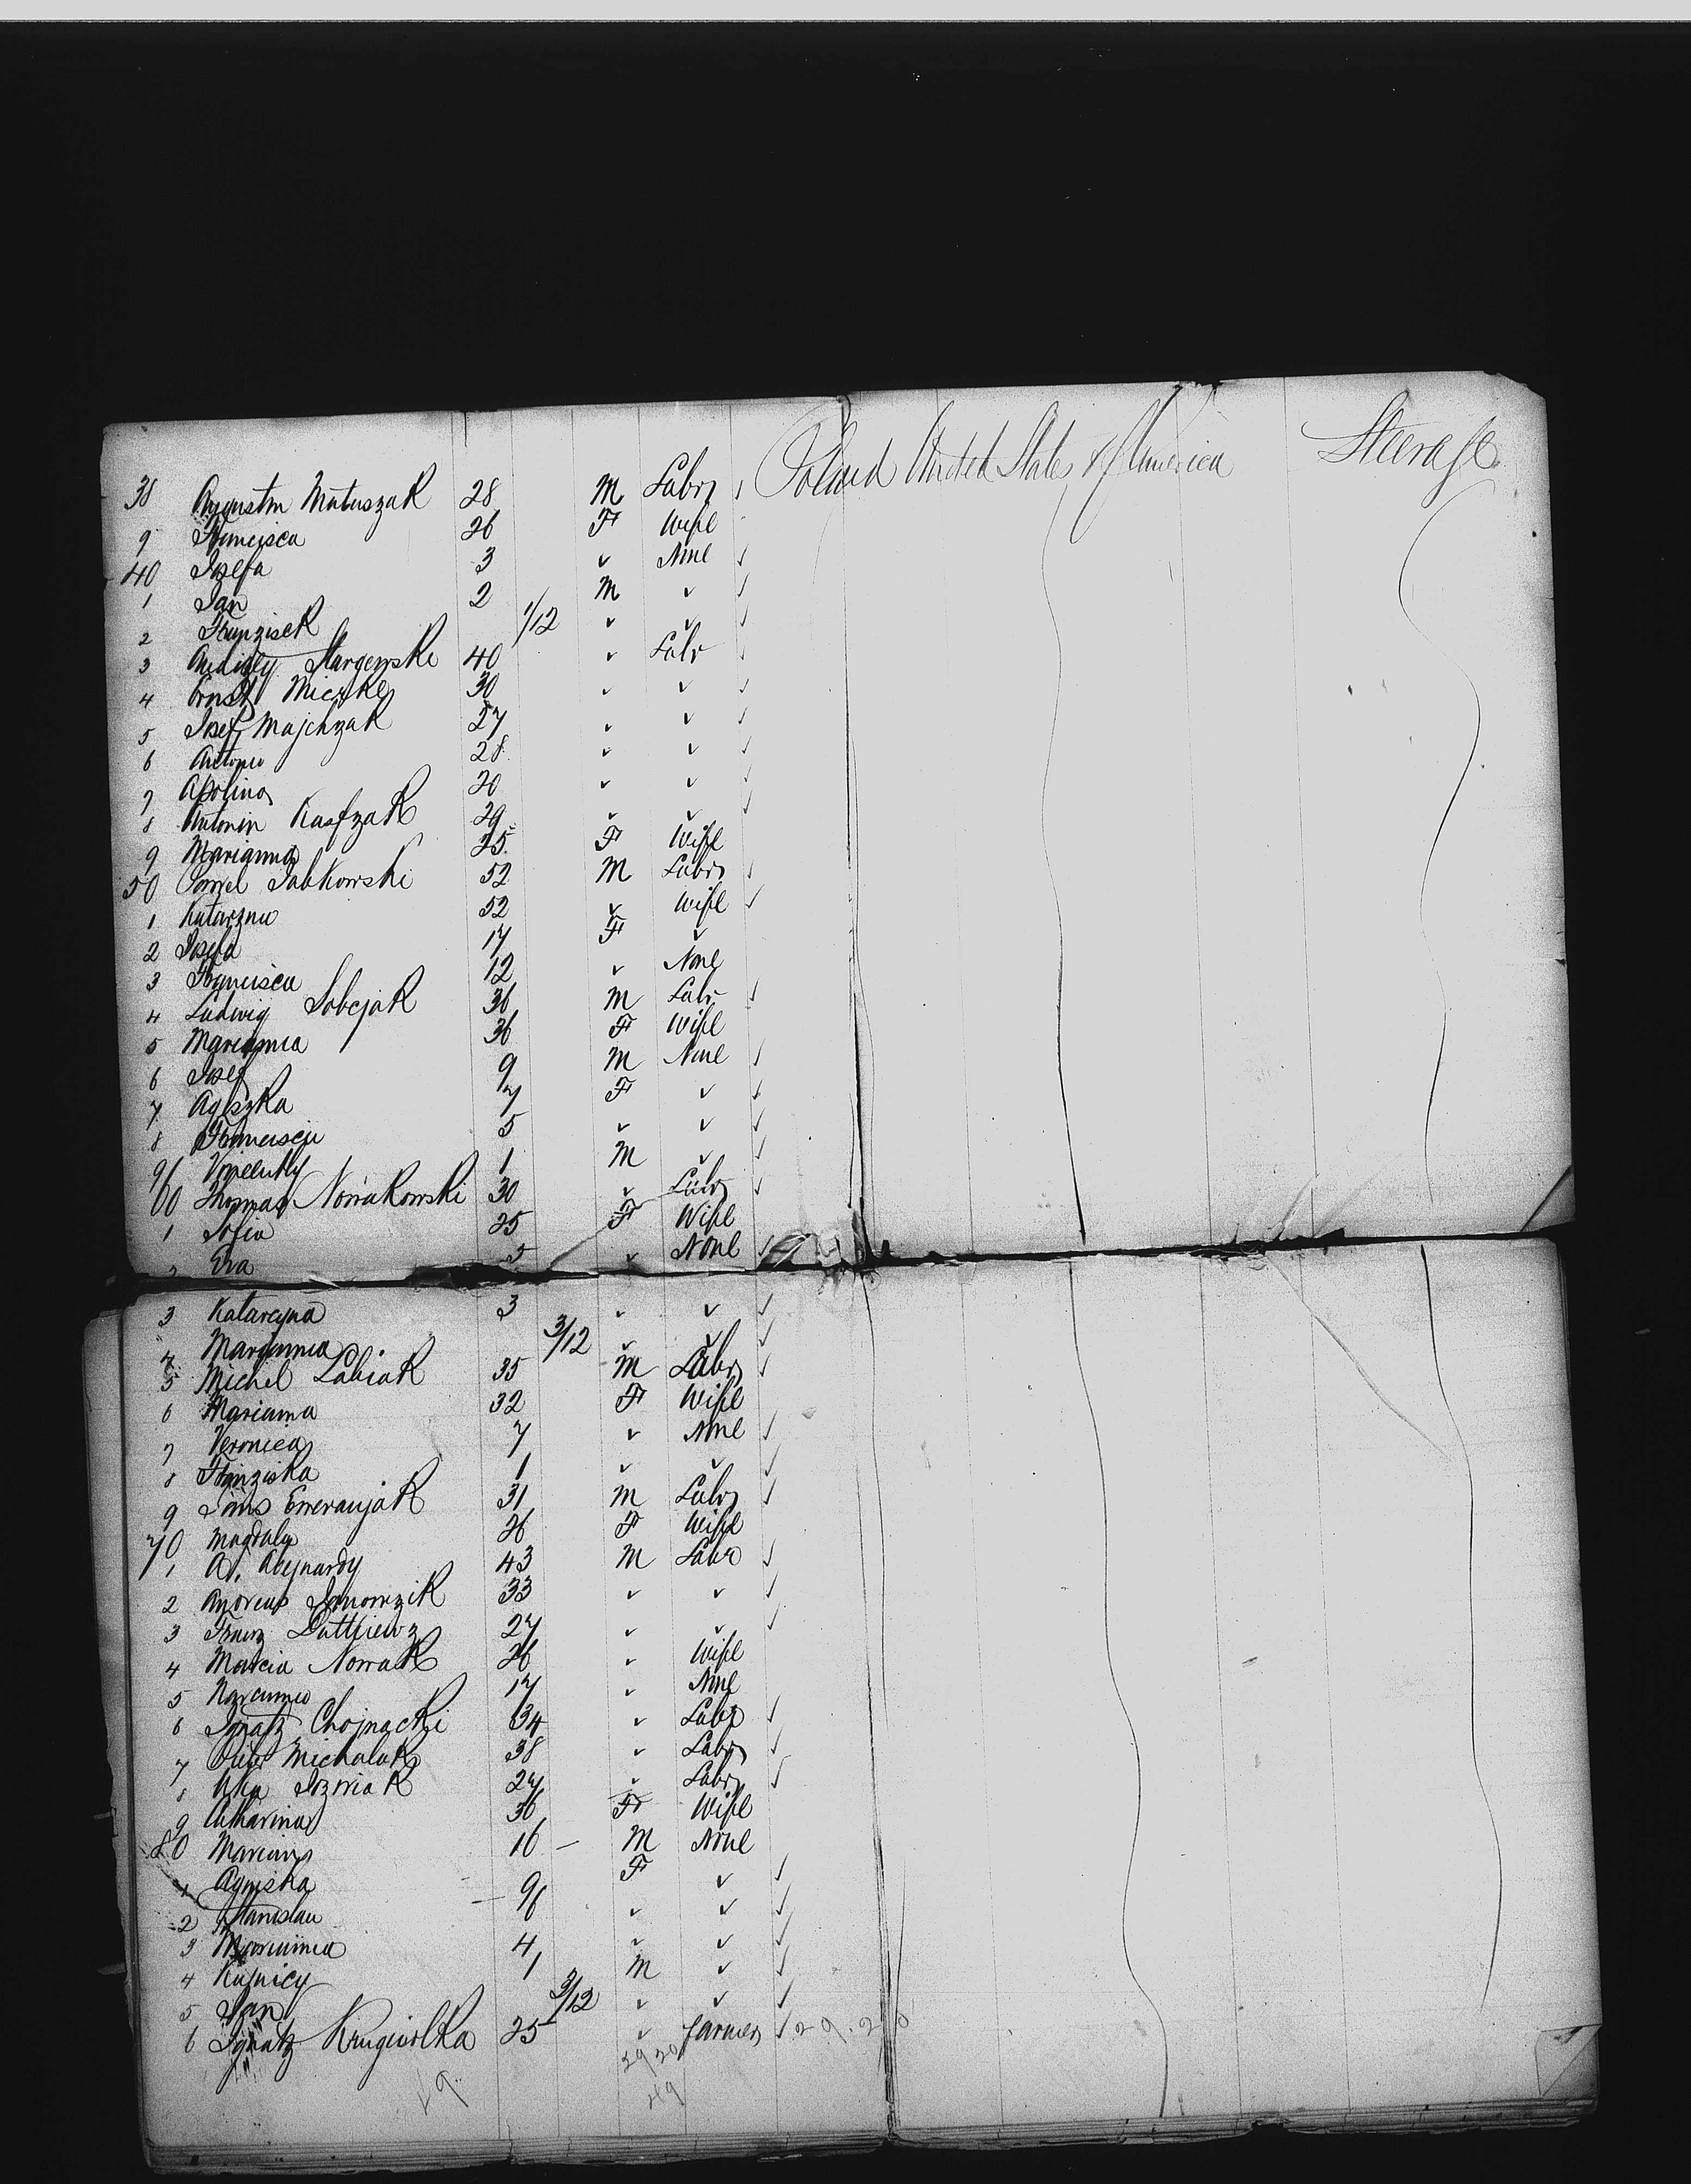 Poland United States of America Steerage
38 Augustin Matuszak 28 M Labr ✓
9 Francisca 26 F Wife
40 Josefa 3 ✓ None ✓
1 Jan 2 M ✓ ✓
2 Franzisek 1/12 ✓ ✓ ✓
3 40 ✓ Labr ✓
4 Ernst Miczke 30 ✓ ✓ ✓
5 Josef Majchzak 27 ✓ ✓ ✓
6 Antoni 28 ✓ ✓ ✓
7 Apolina 20 ✓ ✓ ✓
8 Antonin Kasfzak 29 ✓ ✓ ✓
9 Marianna 25 F Wife
50 Pawel Jabkowski 52 M Labr ✓
1 Katarzna 52 ✓ Wife ✓
2 Josefa 17 F ✓
3 Francisca 12 ✓ None
4 Ludwig Sobcjak 36 M Labr ✓
5 Marianna 36 F Wife
6 Josef 9 M None ✓
7 Agiszka 7 F ✓ ✓
8 Francisca 5 ✓ ✓ ✓
9 1 M ✓ ✓
60 Thomas Nowakowski 30 ✓ Labr ✓
1 Sofia 25 F Wife
2 Eva 5 ✓ None ✓
3 Katarcyna 3 ✓ ✓ ✓
4 Maryanna 3/12 ✓ ✓ ✓
5 Michel Labiak 35 M Labr ✓
6 Marianna 32 F Wife
7 Veronica 7 ✓ None ✓
8 Franziska 1 ✓ ✓ ✓
9 31 M Labr ✓
70 Magdaly 26 F Wife
1 43 M Labr ✓
2 Andreas Janowzik 33 ✓ ✓ ✓
3 Franz 27 ✓ ✓ ✓
4 Marcia Nowak 26 ✓ Wife
5 17 ✓ None
6 Ignatz Chojnacki 34 ✓ Labr ✓
7 Michalak 38 ✓ Labr ✓
8 Jozwiak 27 ✓ Labr ✓
9 Catharina 36 F Wife
80 16 – M None
1 Agniska 9 F ✓ ✓
2 Stanislau 6 ✓ ✓ ✓
3 Marianna 4 ✓ ✓ ✓
4 1 M ✓ ✓
5 Jan 3/12 ✓ ✓ ✓
6 Ignatz 25 ✓ Farmer ✓
29 20
49